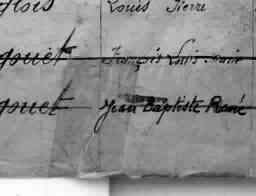 glois Louis Pierre
gouet François Louis Marie
gouet Jean Baptiste René